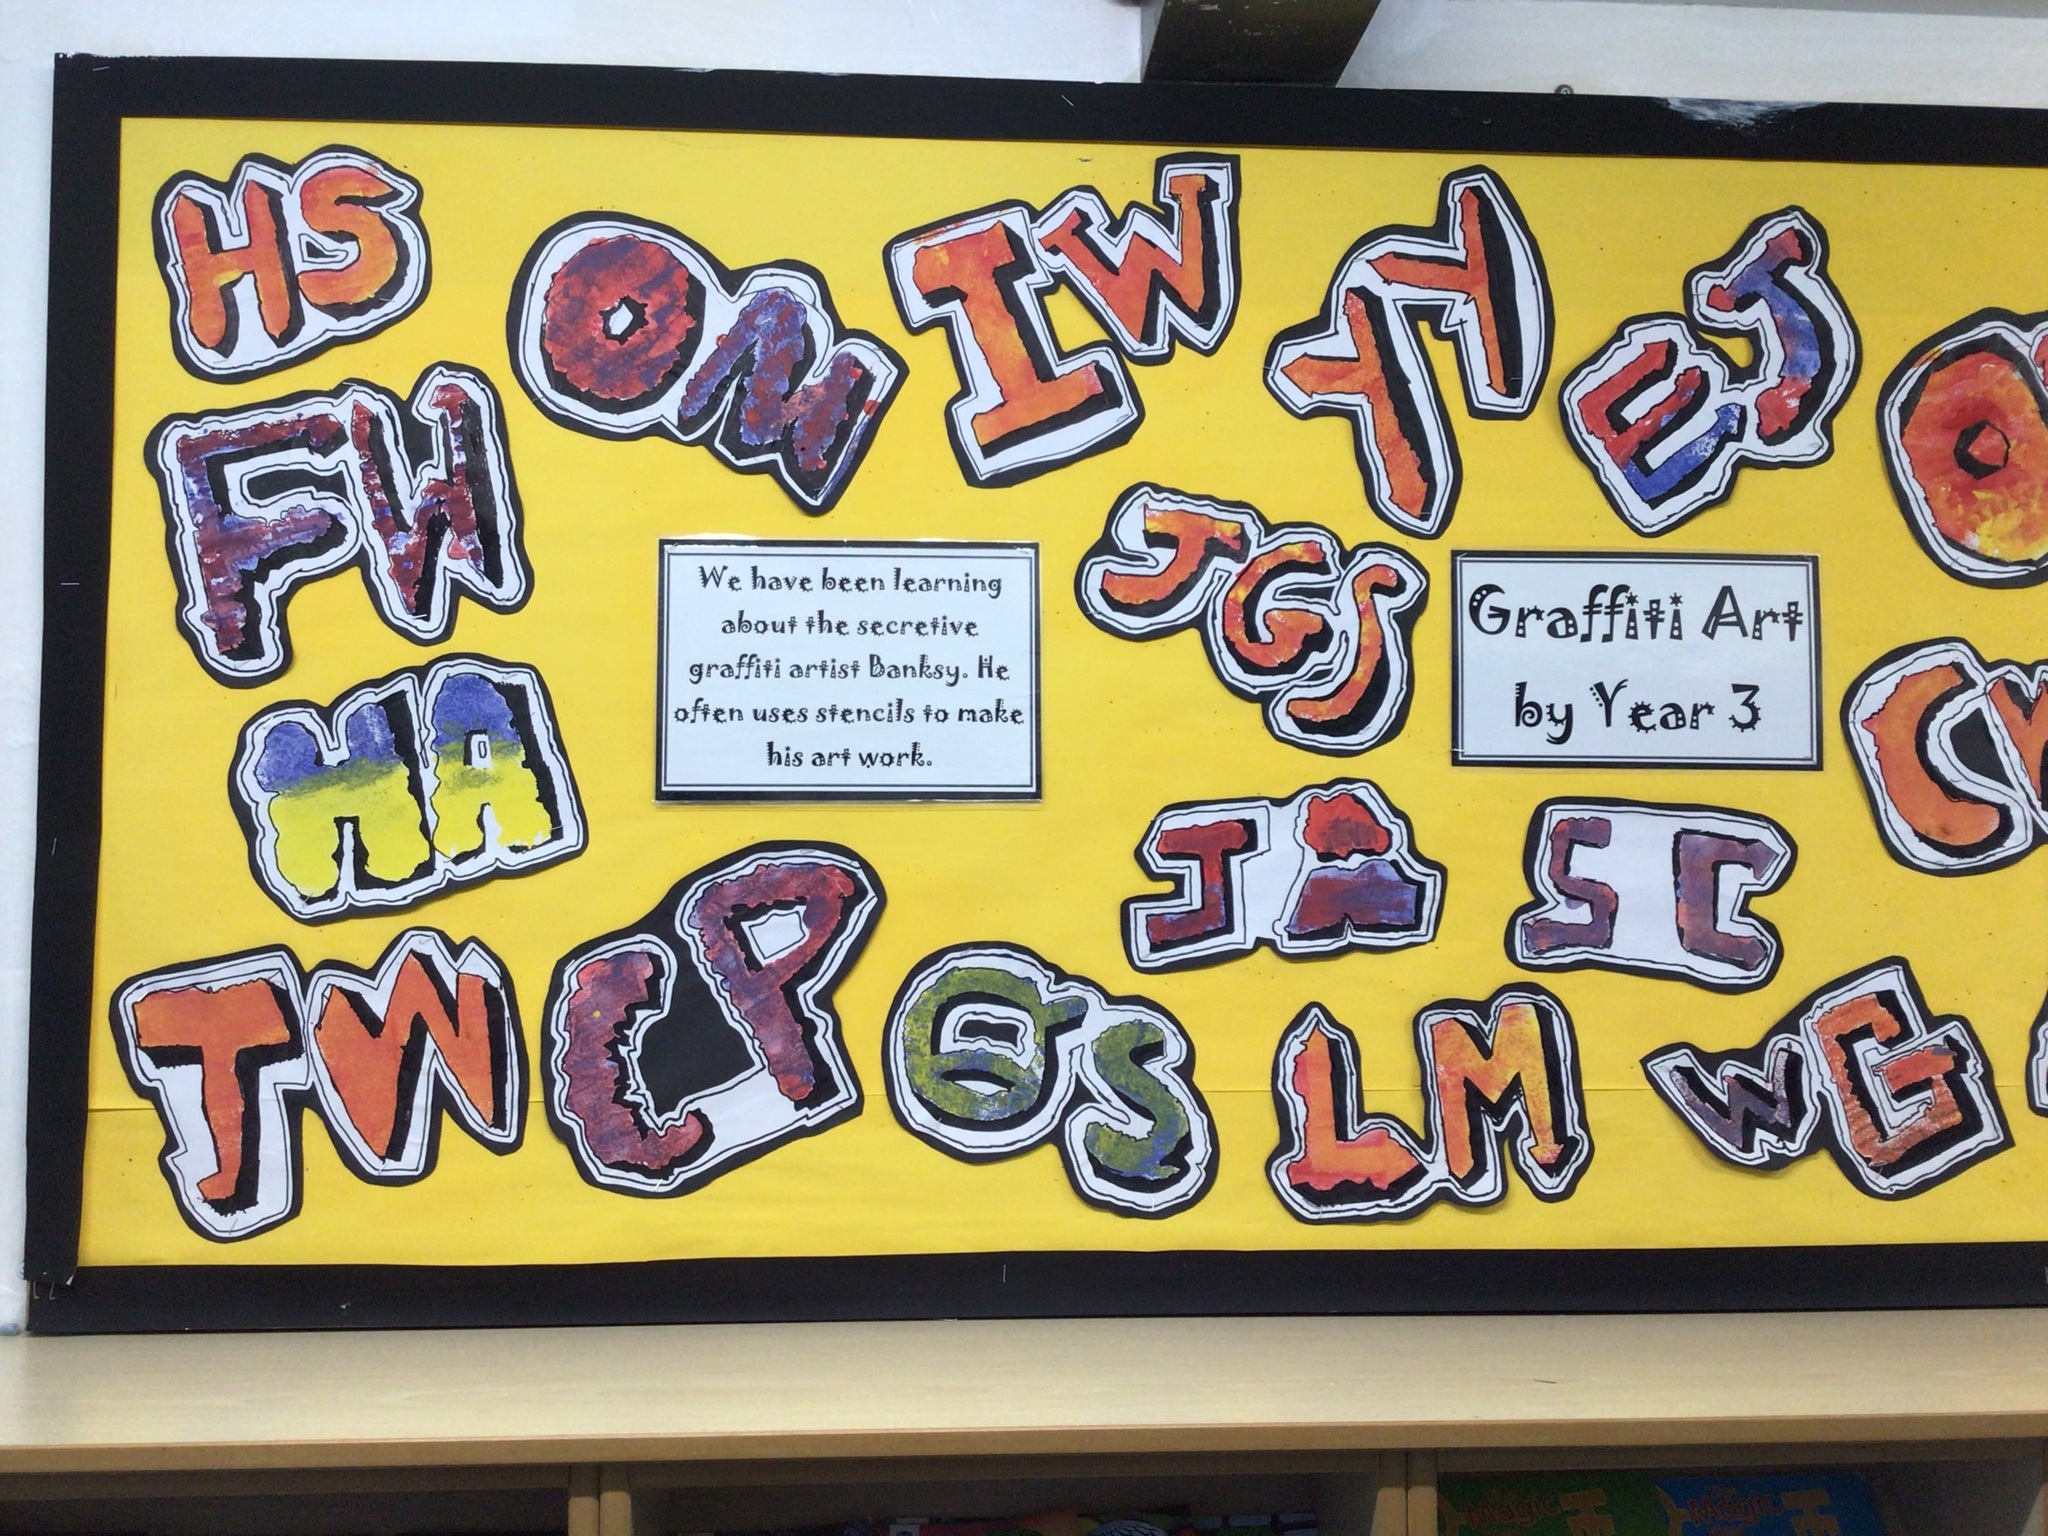 HS
ON
IW
YY
EJ
O
FW
We have been learning
about the secretive
graffiti artist Banksy. He
often uses stencils to make
his art work.
JGS
Graffiti Art
by Year 3
HA
JA
SC
C
TW
LP
S
LM
WG
Magic
Magic